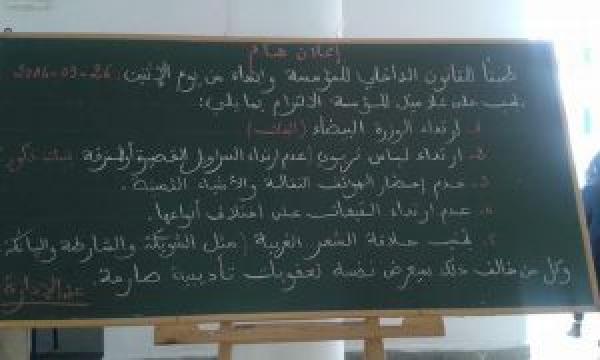 إعلان هام
طبقا للقانون الداخلي للمؤسسة وابتداء من يوم الإثنين:
يجب على تلاميذ المؤسسة الالتزام بما يلي:
1. ارتداء الوزرة البيضاء (الفتيات)
2. ارتداء لباس تربوي (عدم ارتداء السراويل القصيرة أو الممزقة
3. عدم إحضار الهواتف النقالة والأشياء الثمينة.
4. عدم ارتداء القبعات على اختلاف أنواعها.
5. تجنب حلاقة الشعر الغريبة (مثل الشويكة والشارطة
وكل من خالف ذلك يعرض نفسه لعقوبات تأديبية صارمة.
عن الإدارة